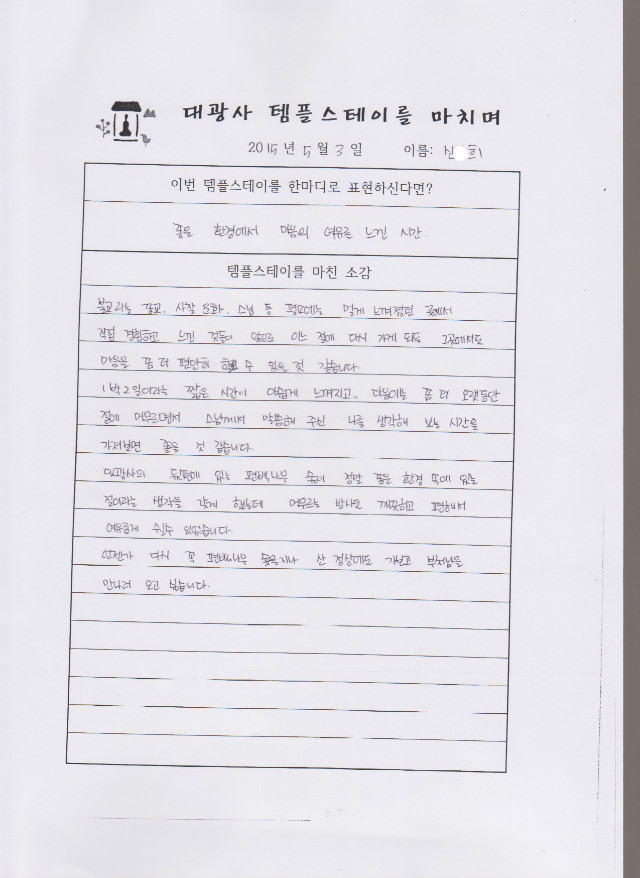 대광사 템플스테이를 마치며
2015년 5월 3일 이름: 신 희
이번 템플스테이를 한마디로 표현하신다면?
좋은 환경에서 마음의 여유를 느낀 시간.
템플스테이를 마친 소감
불교라는 종교, 사찰 문화, 스님 등 평소에는 멀게 느껴졌던 곳에서
직접 경험하고 느낀 것들이 앞으로 어느 절에 다시 가게 되도 그곳에서도
마음을 좀 더 편안히 할 수 있을 것 같습니다.
1박 2일이라는 짧은 시간이 아쉽게 느껴지고.. 다음에는 좀 더 오랫동안
절에 머무르면서 스님께서 말씀해 주신 나를 생각해 보는 시간을
가져보면 좋을 것 같습니다.
대광사의 뒷편에 있는 편백나무 숲이 정말 좋은 환경 속에 있는
절이라는 생각을 갖게 했는데 머무르는 방사도 깨끗하고 편해서
여유롭게 쉴수 있었습니다.
언젠가 다시 꼭 편백나무 숲을 지나 산 정상에도 가보고 부처님을
만나러 오고 싶습니다.